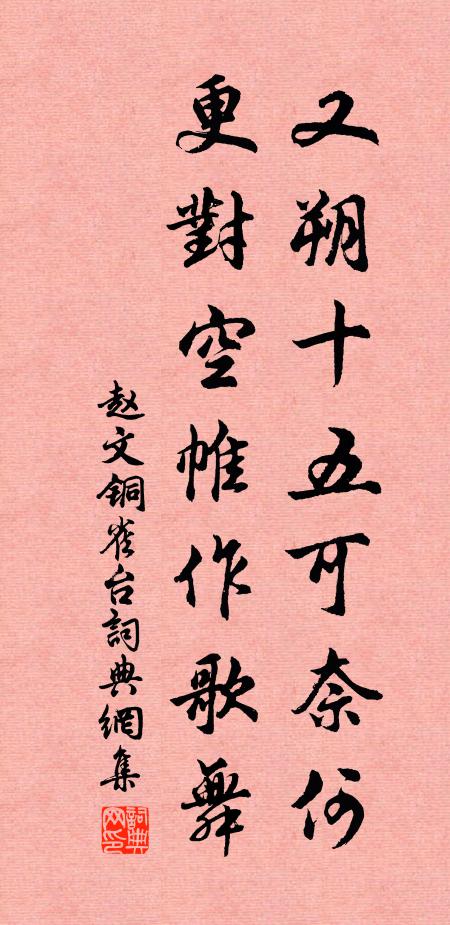 又朔十五可奈何
更對空帷作歌舞
赵文铜雀台詞典網集
詞典网印